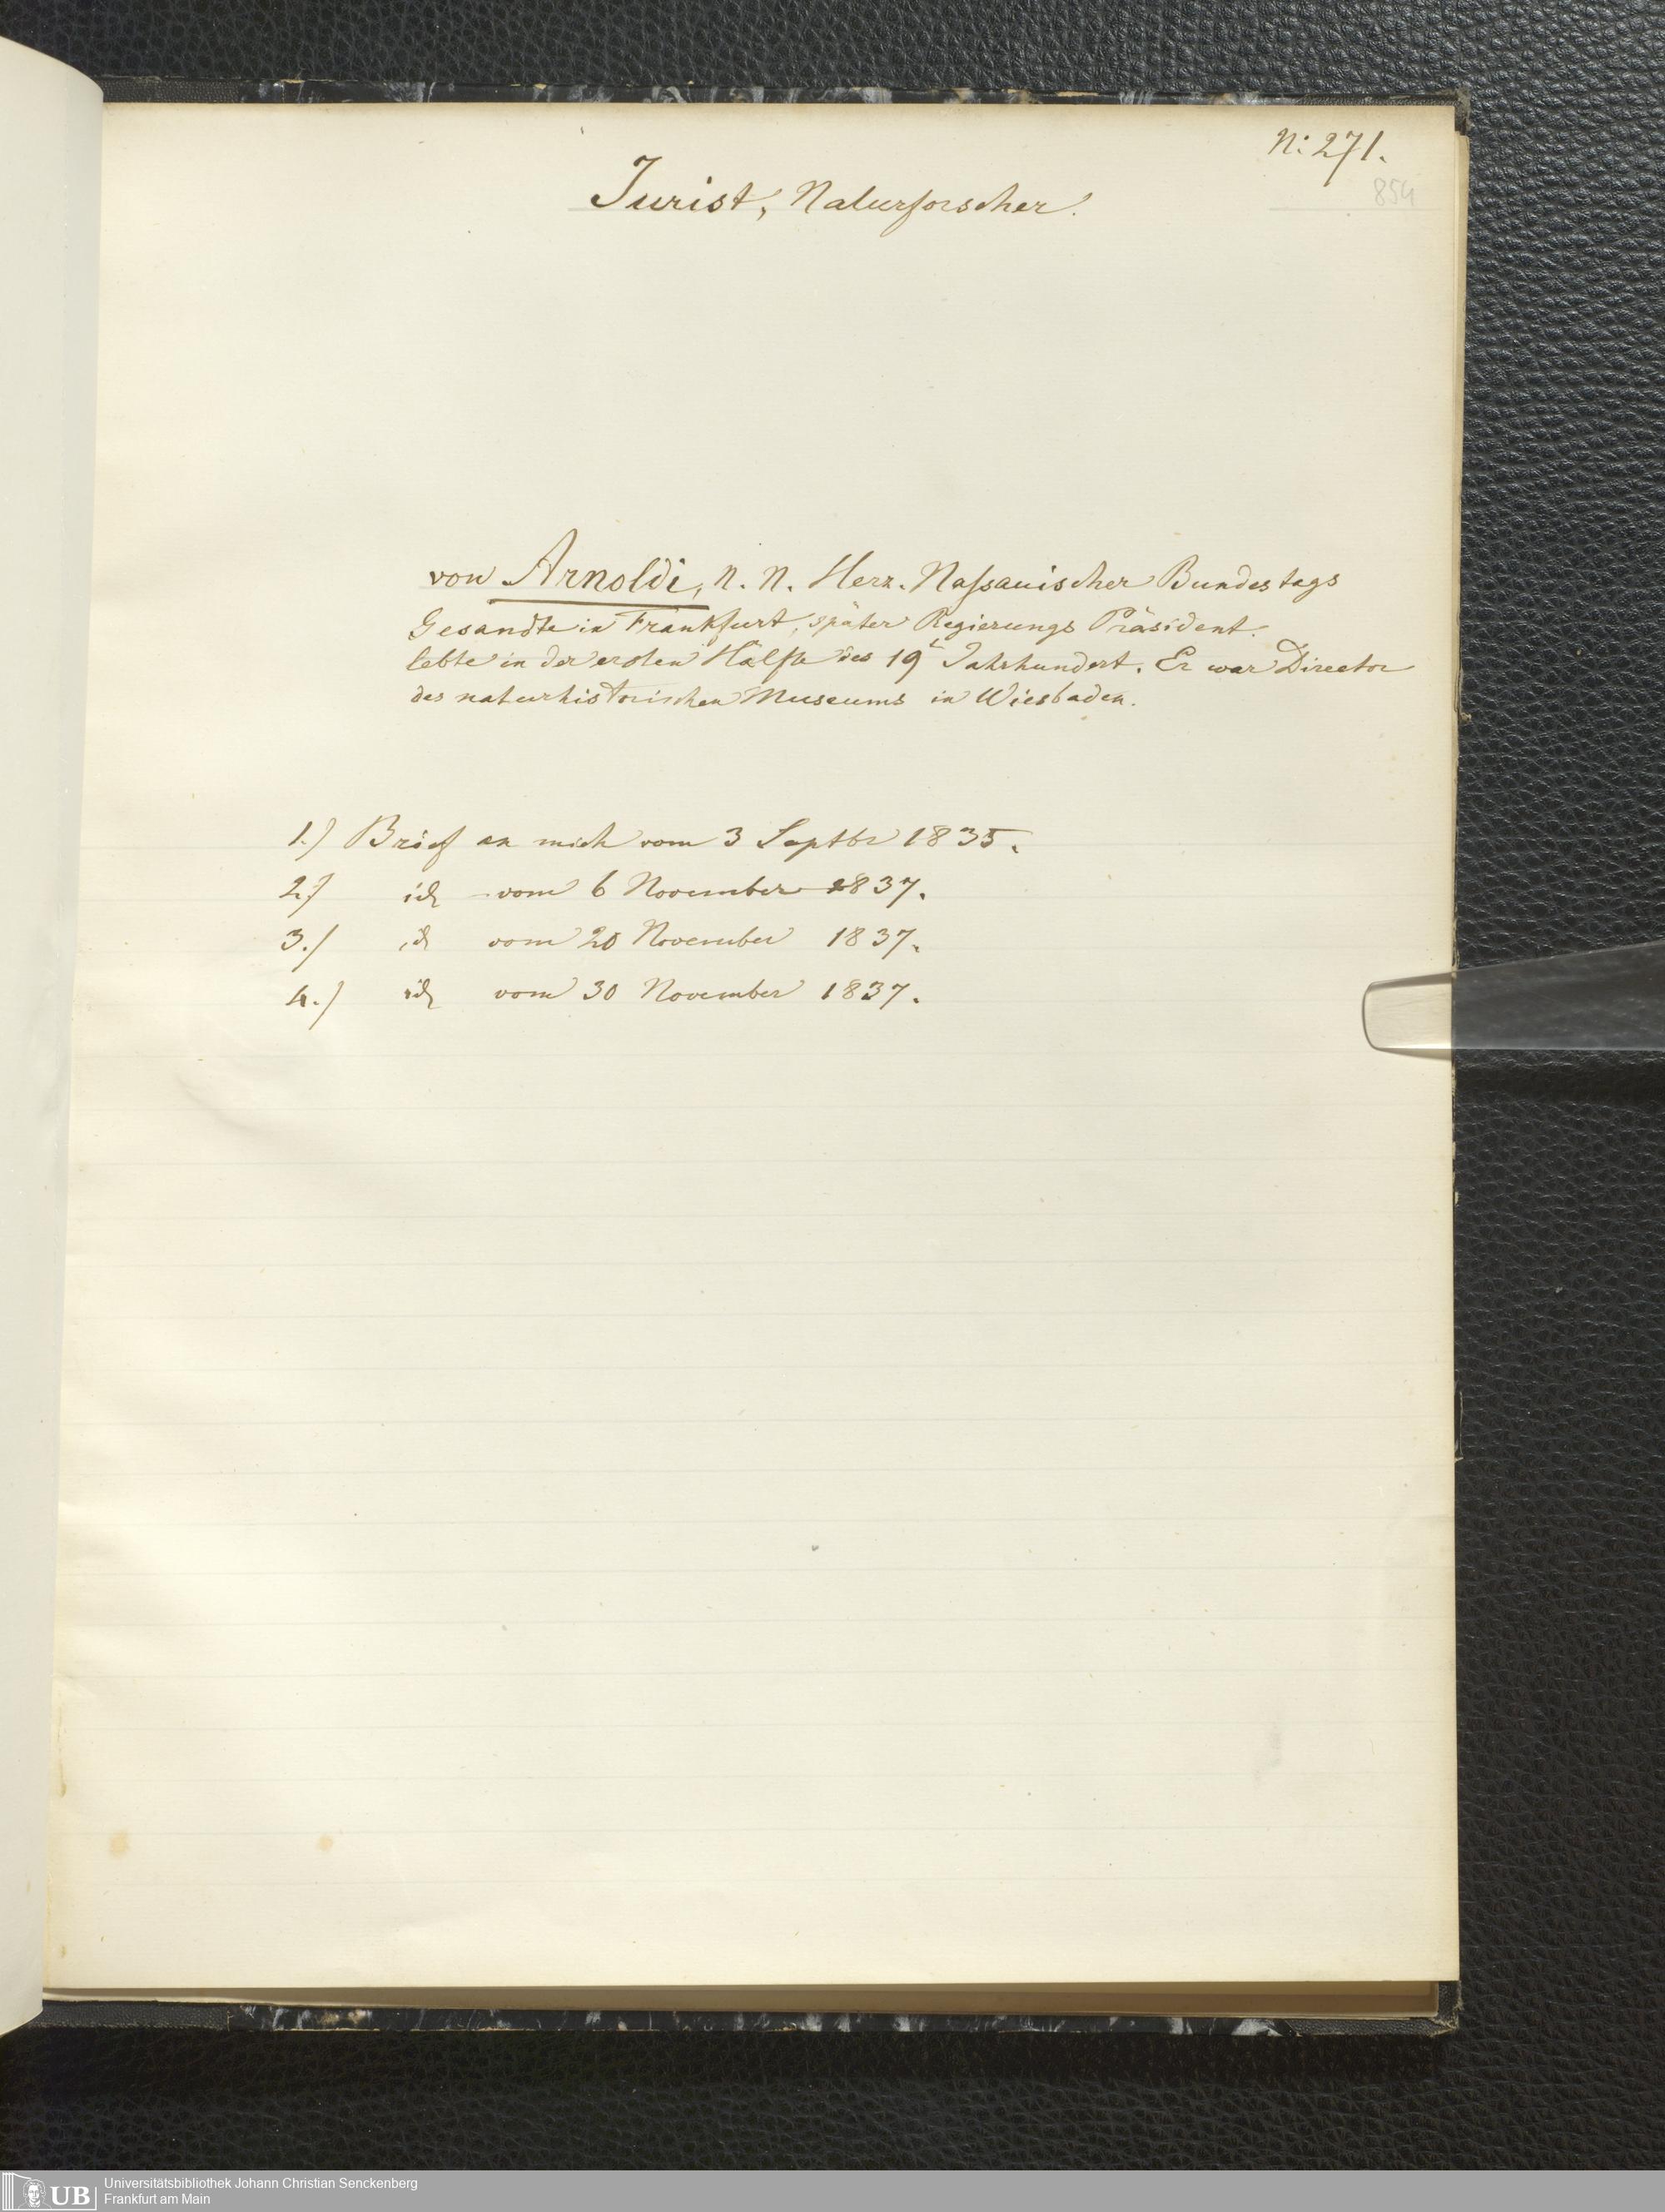 N: 271.
854
Jurist, Naturforscher.
von Arnoldi, N. N. Herz. Naſsauischer Bundestags
Gesandte in Frankfurt, später Regierungs Präsident.
lebte in der ersten Hälfte des 19t Jahrhundert. Er war Director
des naturhistorischen Museums in Wiesbaden.
1.) Brief an mich vom 3 Septbr 1835.
2.) id vom 6 November 1837.
3.) id vom 20 November 1837.
4.) id vom 30 November 1837.
UB Universitätsbibliothek Johann Christian Senckenberg
Frankfurt am Main